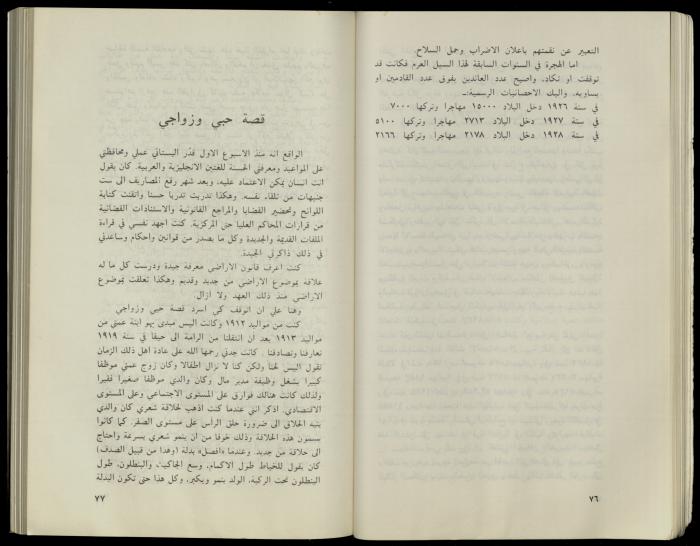 التعبير عن نقمتهم باعلان الاضراب وحمل السلاح.
اما الهجرة في السنوات السابقة لهذا السيل العرم فكانت قد
توقفت او تكاد، واصبح عدد العائدين يفوق عدد القادمين او
يساويه. واليك الاحصائيات الرسمية:ـ
في سنة ١٩٢٦ دخل البلاد ١٥٠٠٠ مهاجرا وتركها ٧٠٠٠
في سنة ١٩٢٧ دخل البلاد ٢٧١٣ مهاجرا وتركها ٥١٠٠
في سنة ١٩٢٨ دخل البلاد ٢١٧٨ مهاجرا وتركها ٢١٦٦
٧٦
قصة حبي وزواجي
الواقع انه منذ الاسبوع الاول قدّر البستاني عملي ومحافظتي
على المواعيد ومعرفتي الحسنة للغتين الانجليزية والعربية. كان يقول
انت انسان يمكن الاعتماد عليه، وبعد شهر رفع المصاريف الى ست
جنيهات من تلقاء نفسه. وهكذا تدربت تدربا حسنا واتقنت كتابة
اللوائح وتحضير القضايا والمراجع القانونية والاستنادات القضائية
من قرارات المحاكم العليا حتى المركزية. كنت اجهد نفسي في قراءة
الملفات القديمة والجديدة وكل ما يصدر من قوانين واحكام وساعدتني
في ذلك ذاكرتي الجيدة.
كنت اعرف قانون الاراضي معرفة جيدة ودرست كل ما له
علاقة بموضوع الاراضي من جديد وقديم وهكذا تعلقت بموضوع
الاراضي منذ ذلك العهد ولا ازال.
وهنا علي ان اتوقف كي اسرد قصة حبي وزواجي
كنت من مواليد ١٩١٢ وكانت اليس ميدى يهو ابنة عمتي من
مواليد ١٩١٣ بعد ان انتقلنا من الرامة الى حيفا في سنة ١٩١٩
تعارفنا وتصادقنا. كانت جدتي رحمها الله على عادة اهل ذلك الزمان
تقول اليس لحنا ولكن كنا لا نزال اطفالا وكان زوج عمتي موظفا
كبيرا يشغل وظيفة مدير مال وكان والدي موظفا صغيرا فقيرا
ولذلك كانت هنالك فوارق على المستوى الاجتماعي وعلى المستوى
الاقتصادي. اذكر انني عندما كنت اذهب لحلاقة شعري كان والدي
ينبه الحلاق الى ضرورة حلق الرأس على مستوى الصفر. كما كانوا
يسمون هذه الحلاقة وذلك خوفا من ان ينمو شعري بسرعة واحتاج
الى حلاقة من جديد. وعندما «افصل» بدلة (وهذا من قبيل الصدف)
كان يقول للخياط طول الاكمام، وسع الجاكيت، والبنطلون، طول
البنطلون تحت الركبة، الولد ينمو ويكبر، وكل هذا حتى تكون البدلة
٧٧